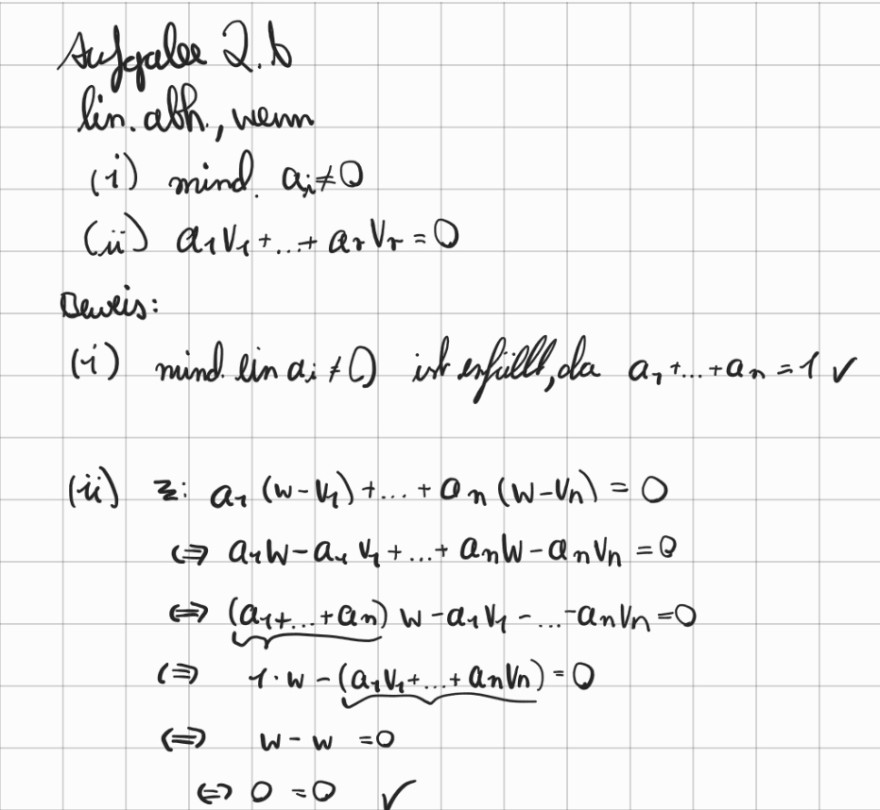 Aufgabe 2.b
lin. abh., wenn
(i) mind. aᵢ≠0
(ii) a₁v₁+...+aᵣvᵣ=0
Beweis:
(i) mind. ein aᵢ≠0 ist erfüllt, da a₁+...+aₙ=1 ✓
(ii) z: a₁(w-v₁)+...+aₙ(w-vₙ)=0
⇔ a₁w-a₁v₁+...+aₙw-aₙvₙ=0
⇔ (a₁+...+aₙ)w-a₁v₁-...-aₙvₙ=0
⇔ 1·w-(a₁v₁+...+aₙvₙ)=0
⇔ w-w=0
⇔ 0=0 ✓